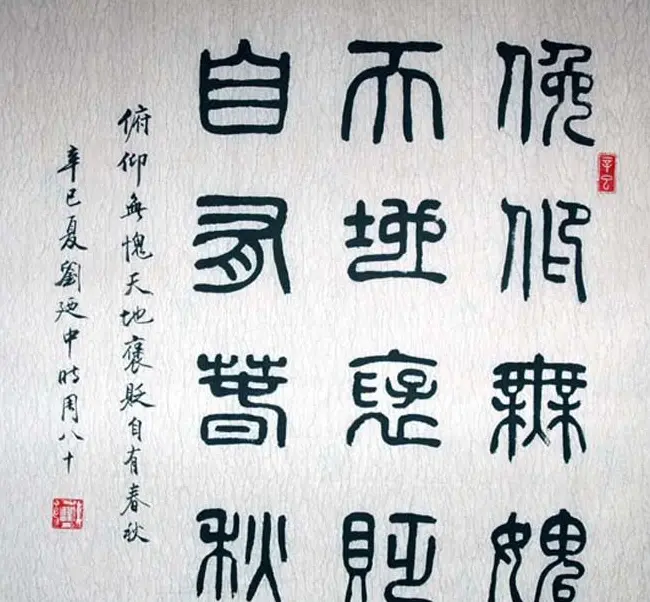 俛仰無媿
天地褒貶
自有春秋
俯仰無愧天地褒貶自有春秋
辛巳夏劉廼中時周八十
辛巳